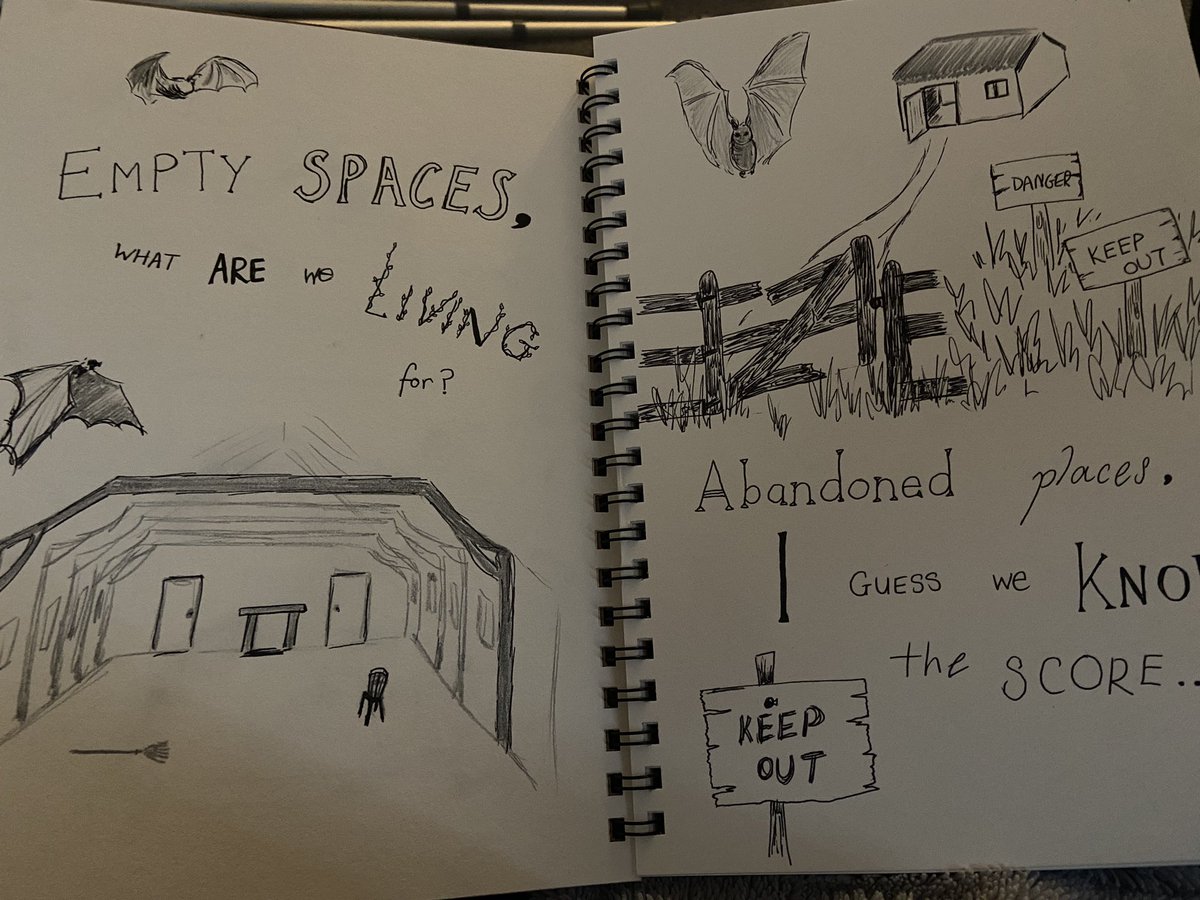 EMPTY SPACES,
WHAT ARE we LIVING
for?
DANGER
KEEP
OUT
Abandoned places.
I GUESS we KNOW
the SCORE..
KEEP
OUT